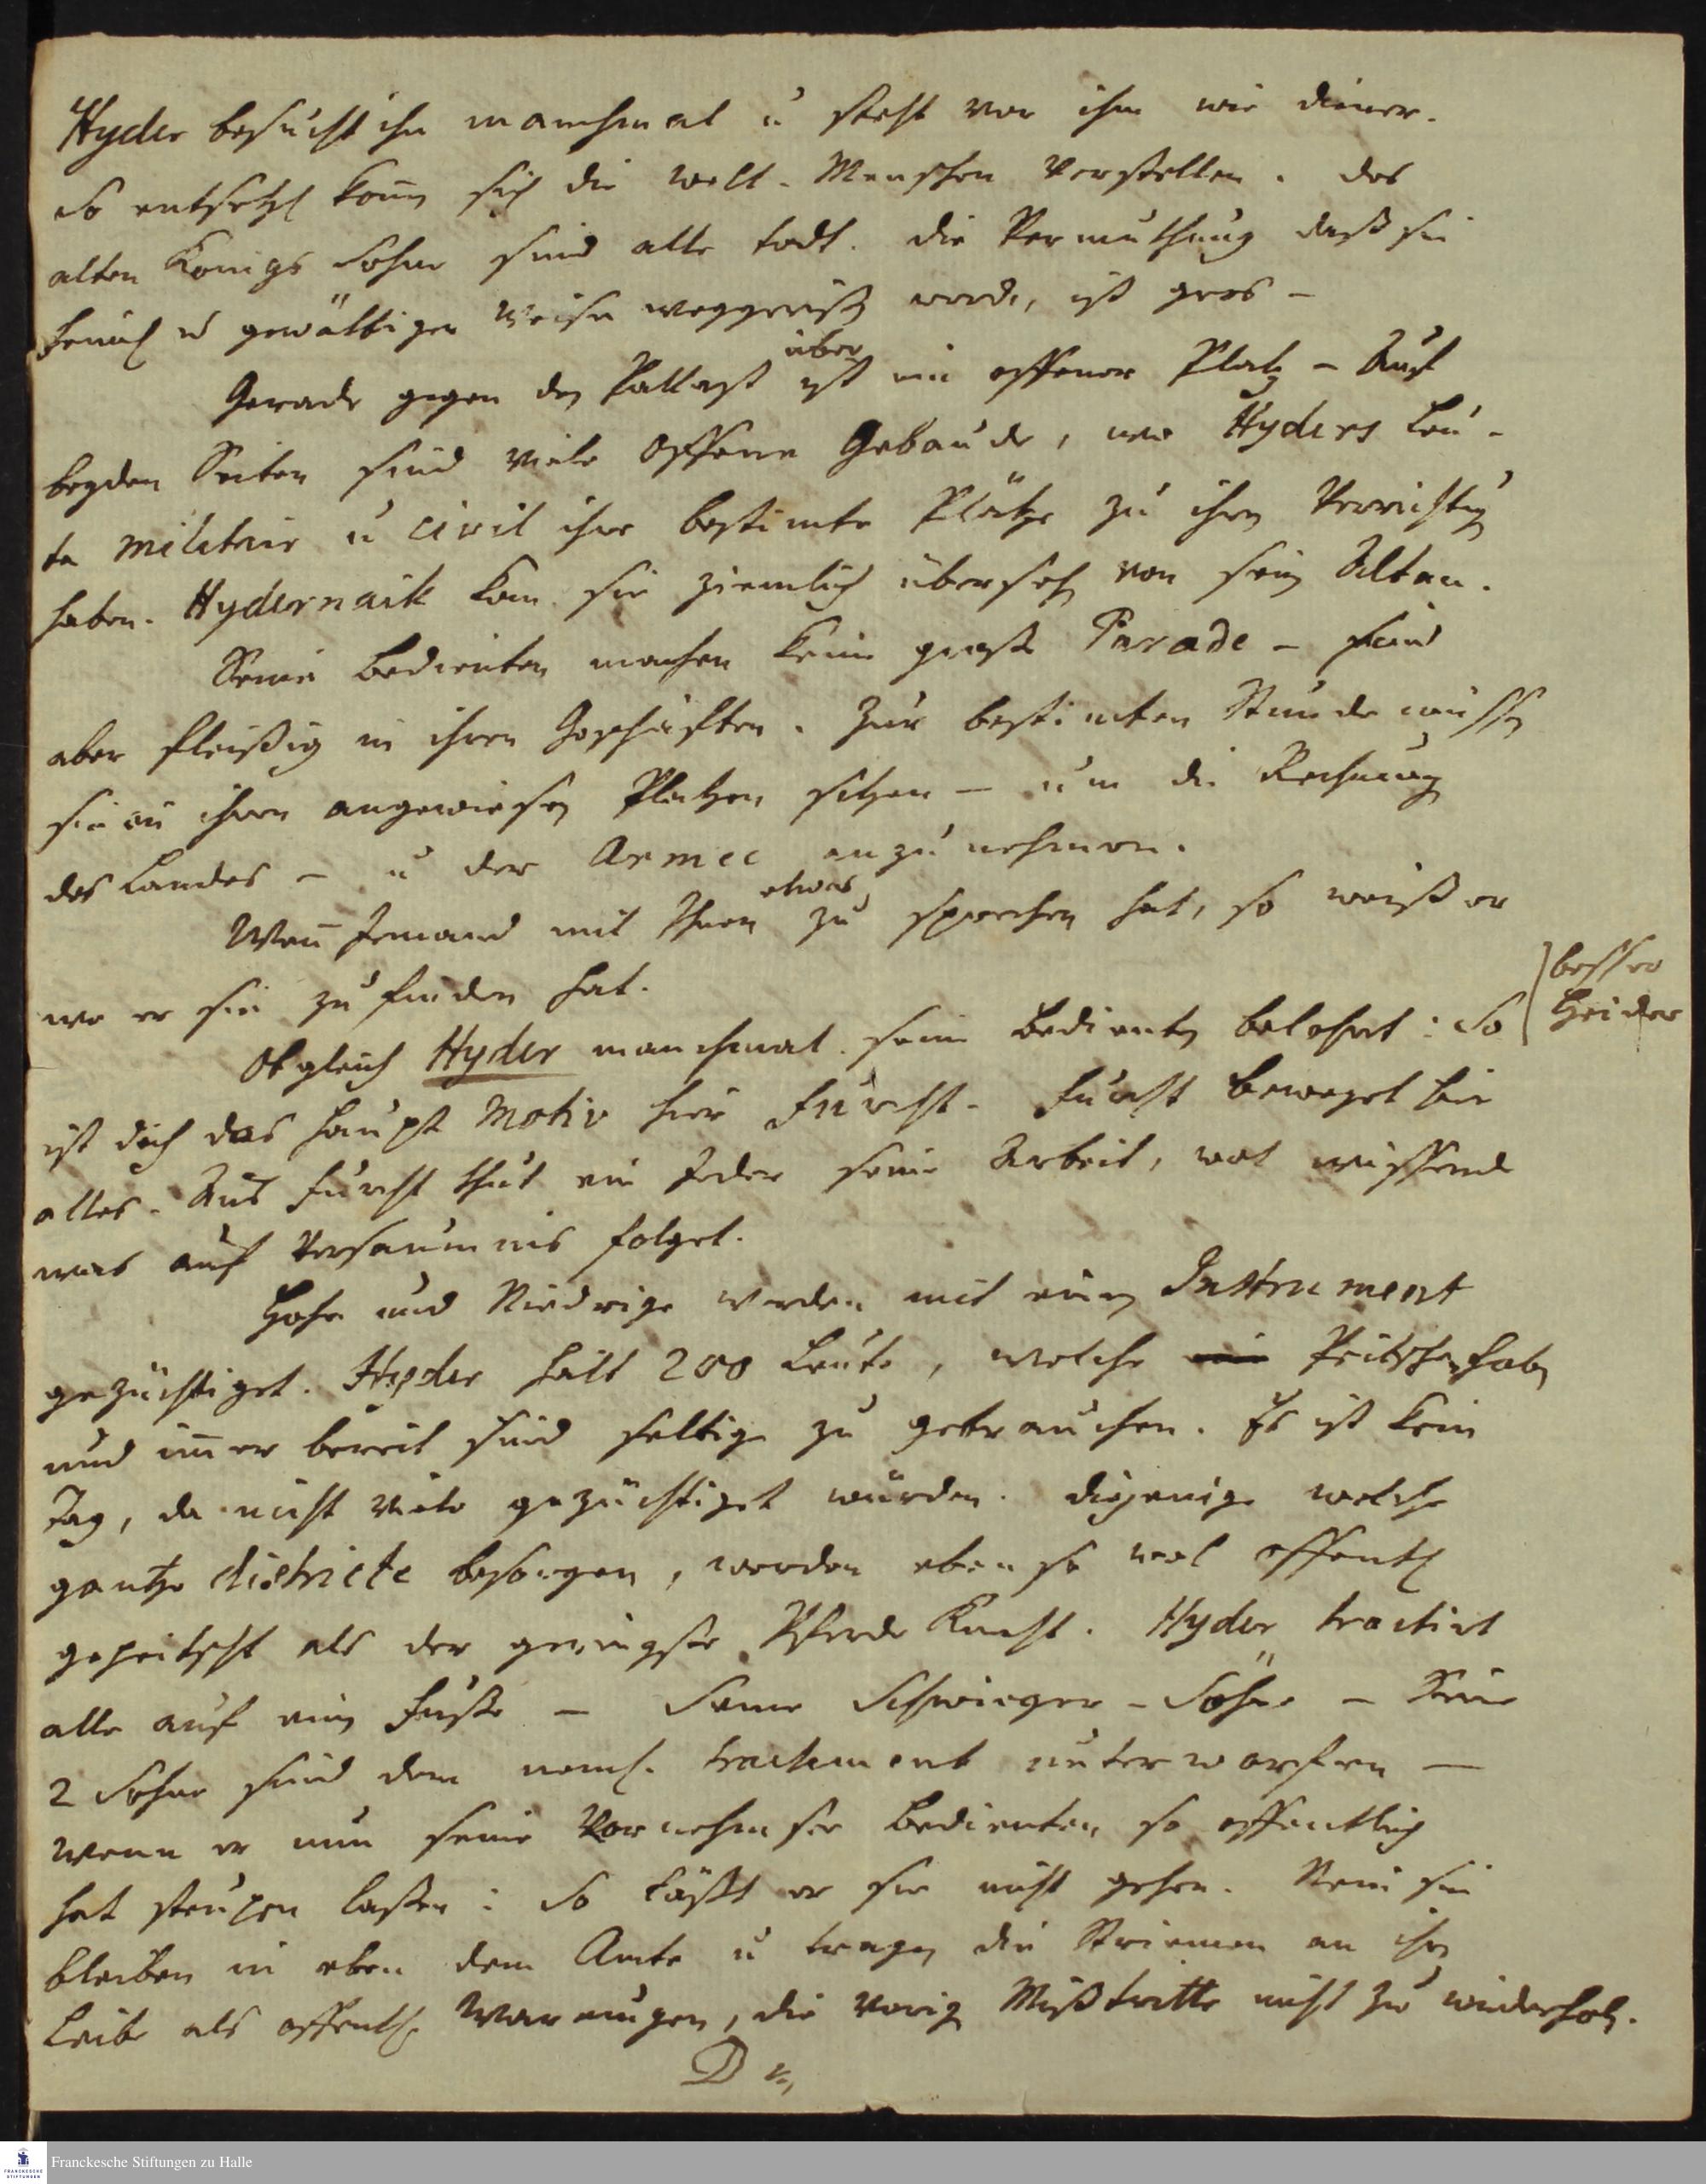 Hyder besucht ihn manchmal u steht vor ihm wie diener.
So entsetzl könn sich die welt-Menschen verstellen. des
alten Konigs Sohne sind alle todt. die Vermuthung daß sie
heiml u gewältiger Weise weggeriß word, ist gros -
Gerade gegen den Pallast über ist ein offener Platz - Auf
beyden Seiten sind viele offene Gebaude, wo Hyders Leu-
te militair u civil ihre bestimte Plätze zu ihren Verrichtung
haben. Hydernaik kan sie ziemlich überseh von sein Altan.
Seine Bedienten machen keine große Parade - sind
aber fleißig in ihren Geschäften. Zur bestimten Stunde müssen
sie in ihren angewiesen Platzen sitzen - um die Rechnung
des Landes - u der Armee anzunehmen.
Wenn Jemand mit Ihnen etwas zu sprechen hat, so weiß er
wo er sie zu finden hat.
Obgleich Hyder manchmal seine Bedienten belohnt: So
besser
Heider
ist doch das Haupt Motiv hier Furcht. Furcht beweget hie
alles. Aus Furcht thut ein Jeder seine Arbeit, wol wissend
was auf Versaumnis folget.
Hohe und Niedrige werden mit einem Instrument
gezüchtiget. Hyder hält 200 Leute, welche Peitschen haben
und immer bereit sind selbige zu gebrauchen. Es ist kein
Tag, da nicht viele gezüchtiget würden. diejenige welche
gantze districte besorgen, werden eben so wol offentl
gepeitscht als der geringste Pferde Knecht. Hyder tractirt
alle auf einem Fuße - Seine Schwieger-Söhne - Seine
2 Sohne sind dem neml. tractement unterworfen -
Wenn er nun seine Vornehmste Bedienten so offentlich
hat steupen laßen: So läßt er sie nicht gehen. Nein sie
bleiben in eben dem Amte u tragen die Striemen an ihrem
Leibe als offentl. Warnungen, die vorige Mißtritte nicht zu wiederhol.
Franckesche Stiftungen zu Halle